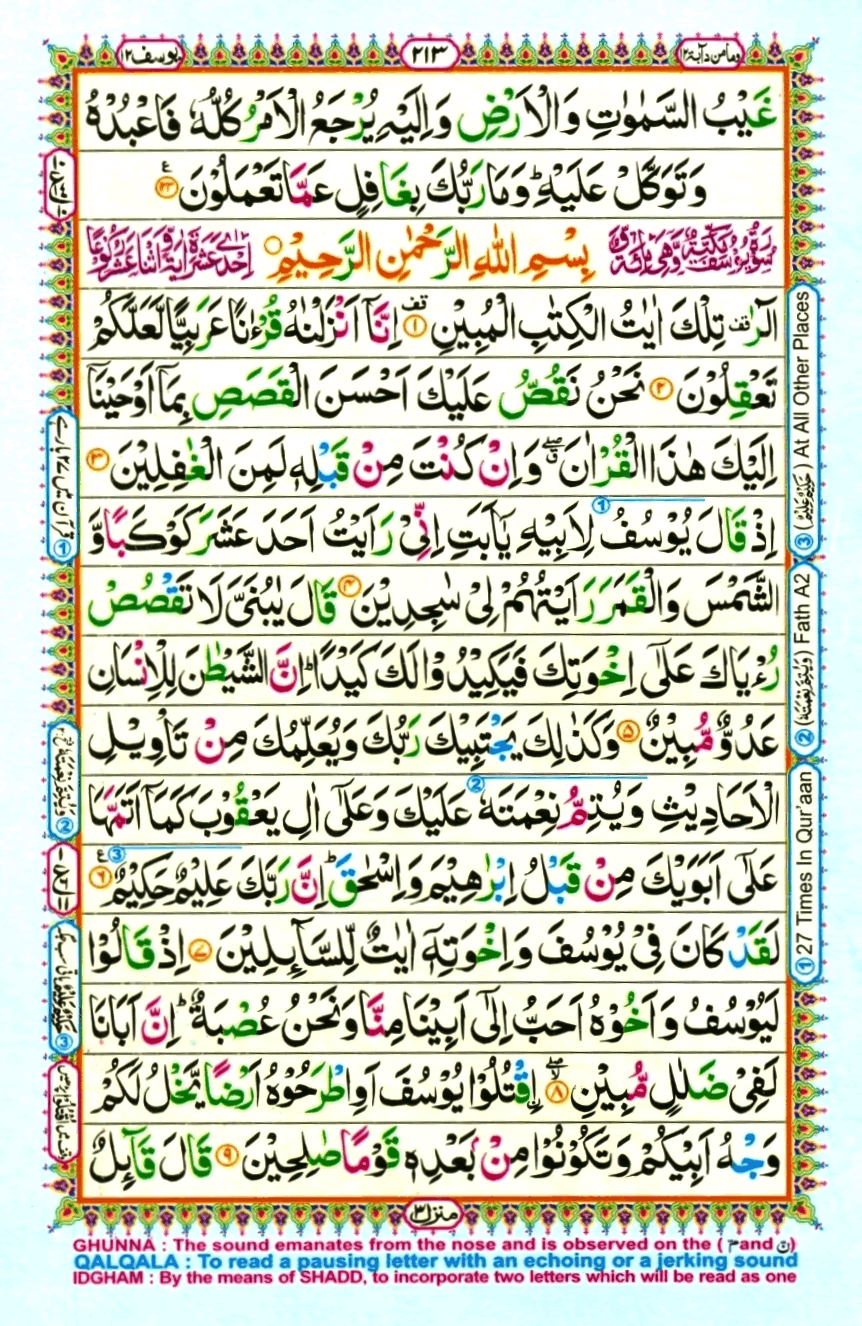 وما من دآبة ١٢
٢١٣
يوسف ١٢
غَيْبُ السَّمٰوٰتِ وَالْاَرْضِ وَاِلَيْهِ يُرْجَعُ الْاَمْرُ كُلُّهٗ فَاعْبُدْهُ
وَتَوَكَّلْ عَلَيْهِ ؕ وَمَا رَبُّكَ بِغَافِلٍ عَمَّا تَعْمَلُوْنَ ۱۲۳ ع
بِسْمِ اللهِ الرَّحْمٰنِ الرَّحِيْمِ
الٓرٰ قف تِلْكَ اٰيٰتُ الْكِتٰبِ الْمُبِيْنِ ۱ قف اِنَّاۤ اَنْزَلْنٰهُ قُرْءٰنًا عَرَبِيًّا لَّعَلَّكُمْ
تَعْقِلُوْنَ ۲ نَحْنُ نَقُصُّ عَلَيْكَ اَحْسَنَ الْقَصَصِ بِمَاۤ اَوْحَيْنَاۤ
اِلَيْكَ هٰذَا الْقُرْاٰنَ ۖ ق وَاِنْ كُنْتَ مِنْ قَبْلِهٖ لَمِنَ الْغٰفِلِيْنَ ۳
اِذْ قَالَ يُوْسُفُ لِاَبِيْهِ يٰۤاَبَتِ اِنِّيْ رَاَيْتُ اَحَدَ عَشَرَ كَوْكَبًا وَّ
الشَّمْسَ وَالْقَمَرَ رَاَيْتُهُمْ لِيْ سٰجِدِيْنَ ۴ قَالَ يٰبُنَيَّ لَا تَقْصُصْ
رُءْيَاكَ عَلٰۤى اِخْوَتِكَ فَيَكِيْدُوْا لَكَ كَيْدًا ؕ اِنَّ الشَّيْطٰنَ لِلْاِنْسَانِ
عَدُوٌّ مُّبِيْنٌ ۵ وَكَذٰلِكَ يَجْتَبِيْكَ رَبُّكَ وَيُعَلِّمُكَ مِنْ تَاْوِيْلِ
الْاَحَادِيْثِ وَيُتِمُّ نِعْمَتَهٗ عَلَيْكَ وَعَلٰۤى اٰلِ يَعْقُوْبَ كَمَاۤ اَتَمَّهَا
عَلٰۤى اَبَوَيْكَ مِنْ قَبْلُ اِبْرٰهِيْمَ وَاِسْحٰقَ ؕ اِنَّ رَبَّكَ عَلِيْمٌ حَكِيْمٌ ۶ ع
لَقَدْ كَانَ فِيْ يُوْسُفَ وَاِخْوَتِهٖۤ اٰيٰتٌ لِّلسَّآىِٕلِيْنَ ۷ اِذْ قَالُوْا
لَيُوْسُفُ وَاَخُوْهُ اَحَبُّ اِلٰۤى اَبِيْنَا مِنَّا وَنَحْنُ عُصْبَةٌ ؕ اِنَّ اَبَانَا
لَفِيْ ضَلٰلٍ مُّبِيْنِ ۸ اۨقْتُلُوْا يُوْسُفَ اَوِ اطْرَحُوْهُ اَرْضًا يَّخْلُ لَكُمْ
وَجْهُ اَبِيْكُمْ وَتَكُوْنُوْا مِنْۢ بَعْدِهٖ قَوْمًا صٰلِحِيْنَ ۹ قَالَ قَآىِٕلٌ
منزل ٣
① 27 Times In Qur'aan
② (وَيُتِمُّ نِعْمَتَهٗ) Fath A2
③ (حَكِيْمٌ عَلِيْمٌ) At All Other Places
GHUNNA : The sound emanates from the nose and is observed on the ( مّ and نّ)
QALQALA : To read a pausing letter with an echoing or a jerking sound
IDGHAM : By the means of SHADD, to incorporate two letters which will be read as one